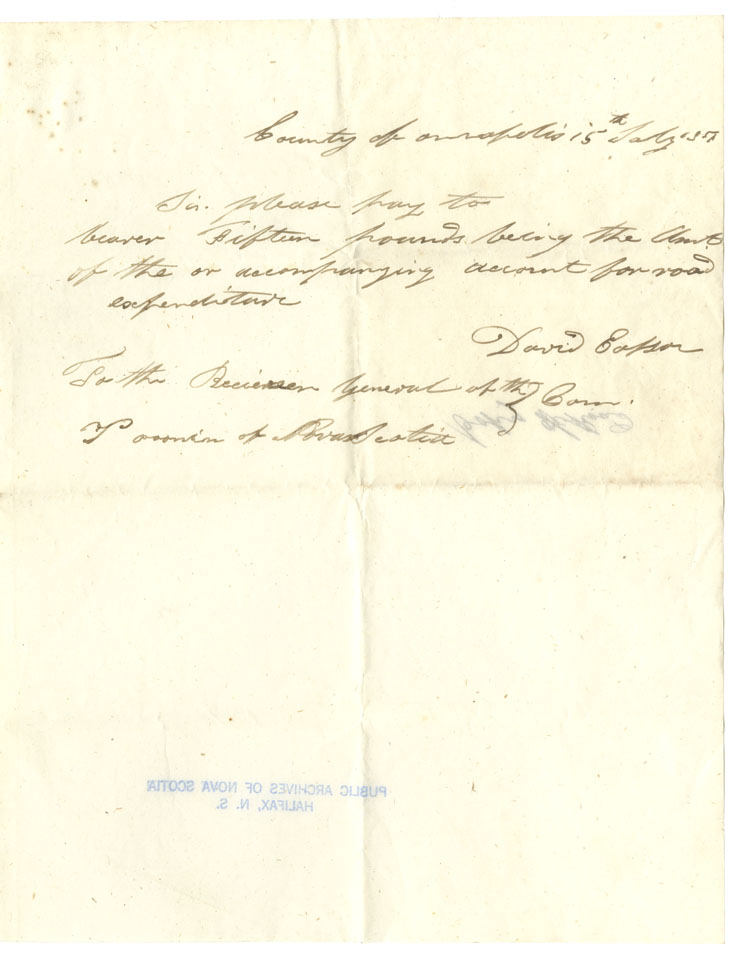 County of annapolis 15th July
Sir. please pay to
bearer Fifteen pounds being the Amt
of the or accompanying account for road
expenditure
David
To the General of the Com.
of Nova Scotia
PUBLIC ARCHIVES OF NOVA SCOTIA
HALIFAX, N. S.